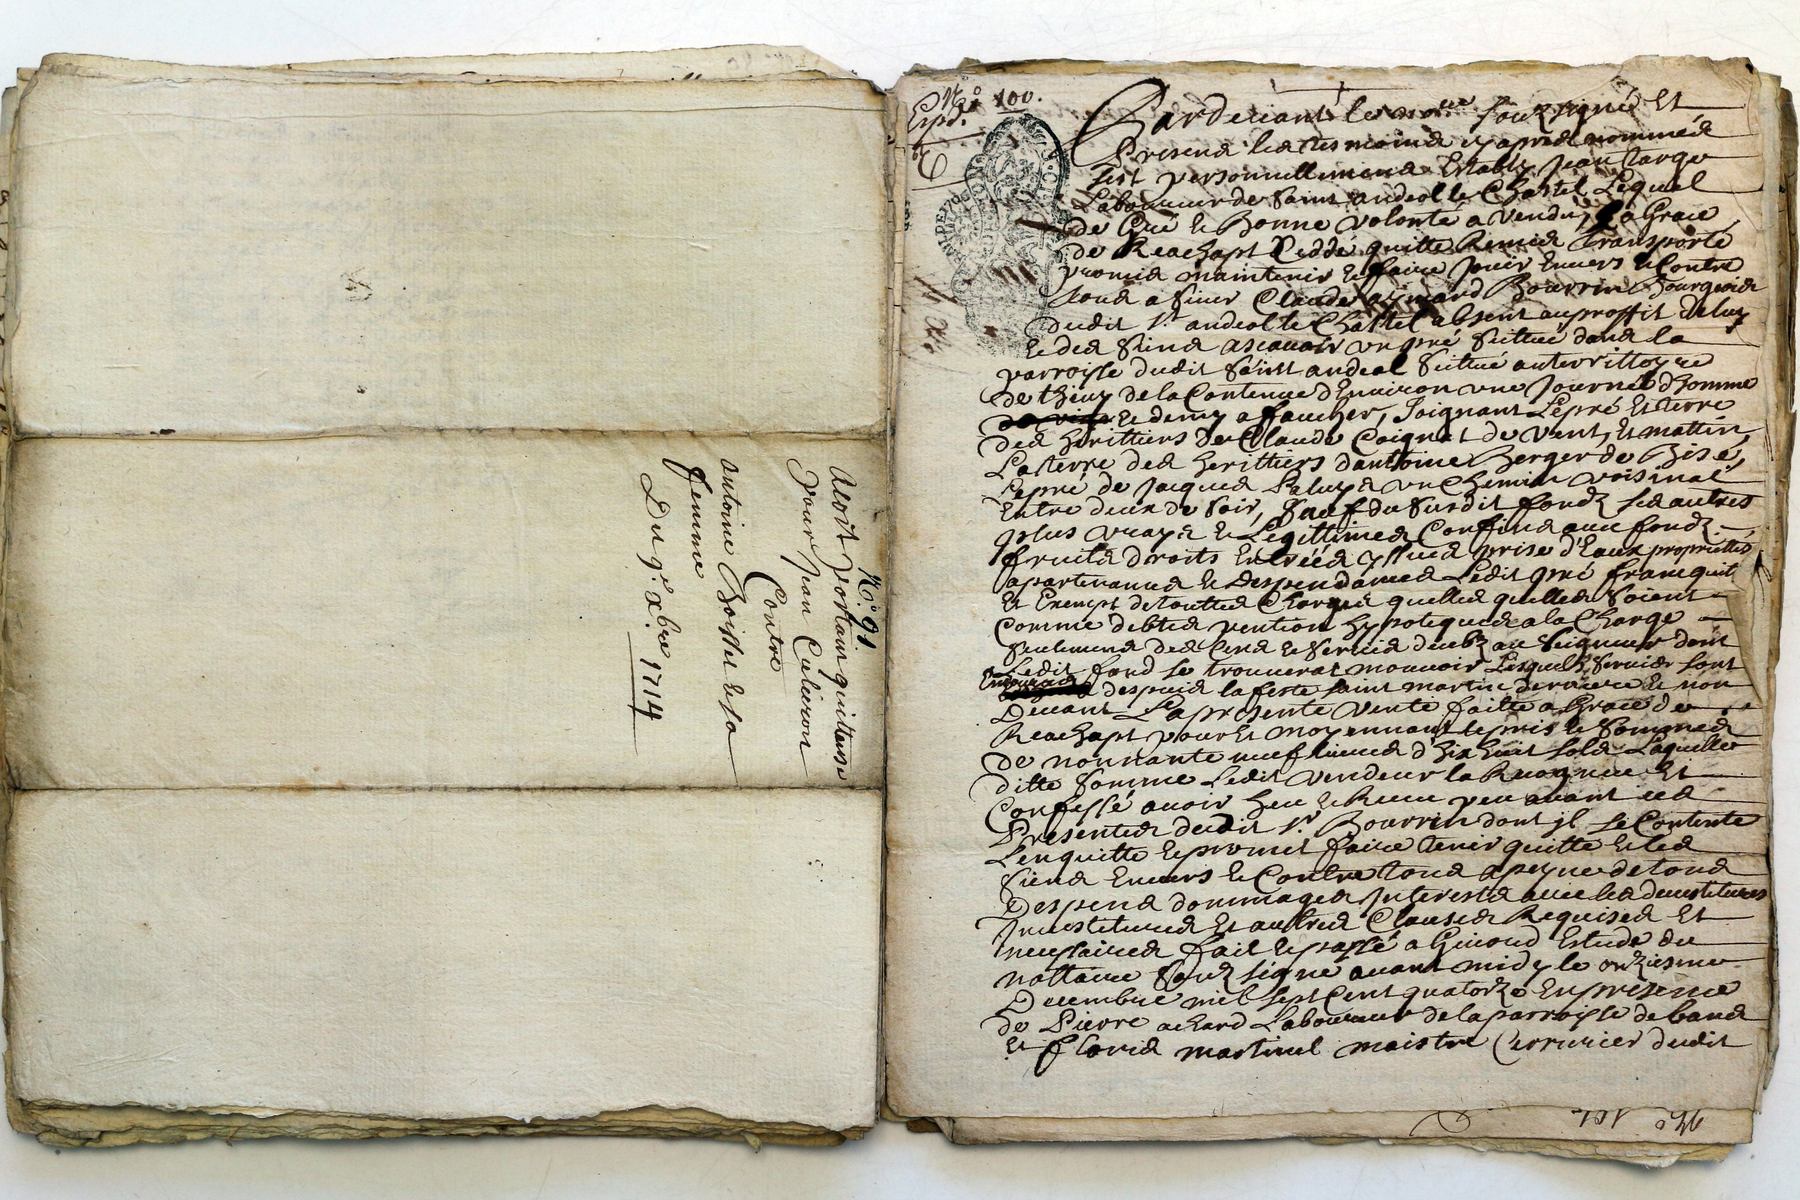 N.° 91
Acort portant quittance
pour Jean
Contre
Antoine Boisset et sa
femme
Du 9.e xbre 1714
N.° 100.
Expd.é
Pardevant le no.re souzsigné Et
Presens les tesmoins cy apres nommés
sest personnellement Estably Jean Clarque
Laboureur de Saint andeol le Chastel Lequel
de Gré et Bonne volonté a vendu, a Grace
de Reachapt Ceddé quitte Remis Transporté
promis maintenir et faire jouir Envers et Contre
tous a sieur Claude aymard Bourrin Bourgeois
dudit St. andeol le Chastel absent au proffit de luy
et des siens ascavoir un pré Scittué dans la
parroisse dudit Saint andeol Scittué au territtoyre
de de la Contenue d'Environ une Journée d'homme
et demy a faucher, Joignant Lepré et terre
des herittiers de Claude Coignet de vent, et mattin,
La terre des herittiers dantoine Berger de Bise,
Lepré de Jacques Paluy un Chemin voisinal
Entre deux de soir, Sauf du susdit fondz ses autres
plus vrays et Legittimes Confins avec fondz
fruits droits Entrées yssues prise d'Eaux proprietés
apartenances et Despendances Ledit pré franc quit
Et Exempt de touttes Charges quelles quelles soient
Comme debtes pention hypoteques a la Charge
seulement des Cens et servis deubz au Seigneur dont
Ledit fond se trouverat mouvoir Lesquelz servis sont
despuis la feste saint martin derniere et non
Devant La presente vente faitte a Grace de
Reachapt pour Et moyennant le pris et somme
de nonnante neuf livres dhix huit sols Laquelle
ditte somme Ledit vendeur la Recognue Et
Confessé avoir heu et Receu peu avant ces
Presentes dudit Sr. Bourrin dont jl se Contente
Lenquitte et promet faire tenir quitte et les
siens Envers et Contre tous a peyne de tous
Despens dommages Interests avec les devestitures
Investitures Et autres Clauses Requises Et
necessaires fait et passé a Estude du
nottaire souz signé avant midy le onziesme
Decembre mil sept Cent quatorze En presence
de Pierre achard Laboureur de la parroisse de
et Floris martinel maistre Cerrurier dudit
No. 101